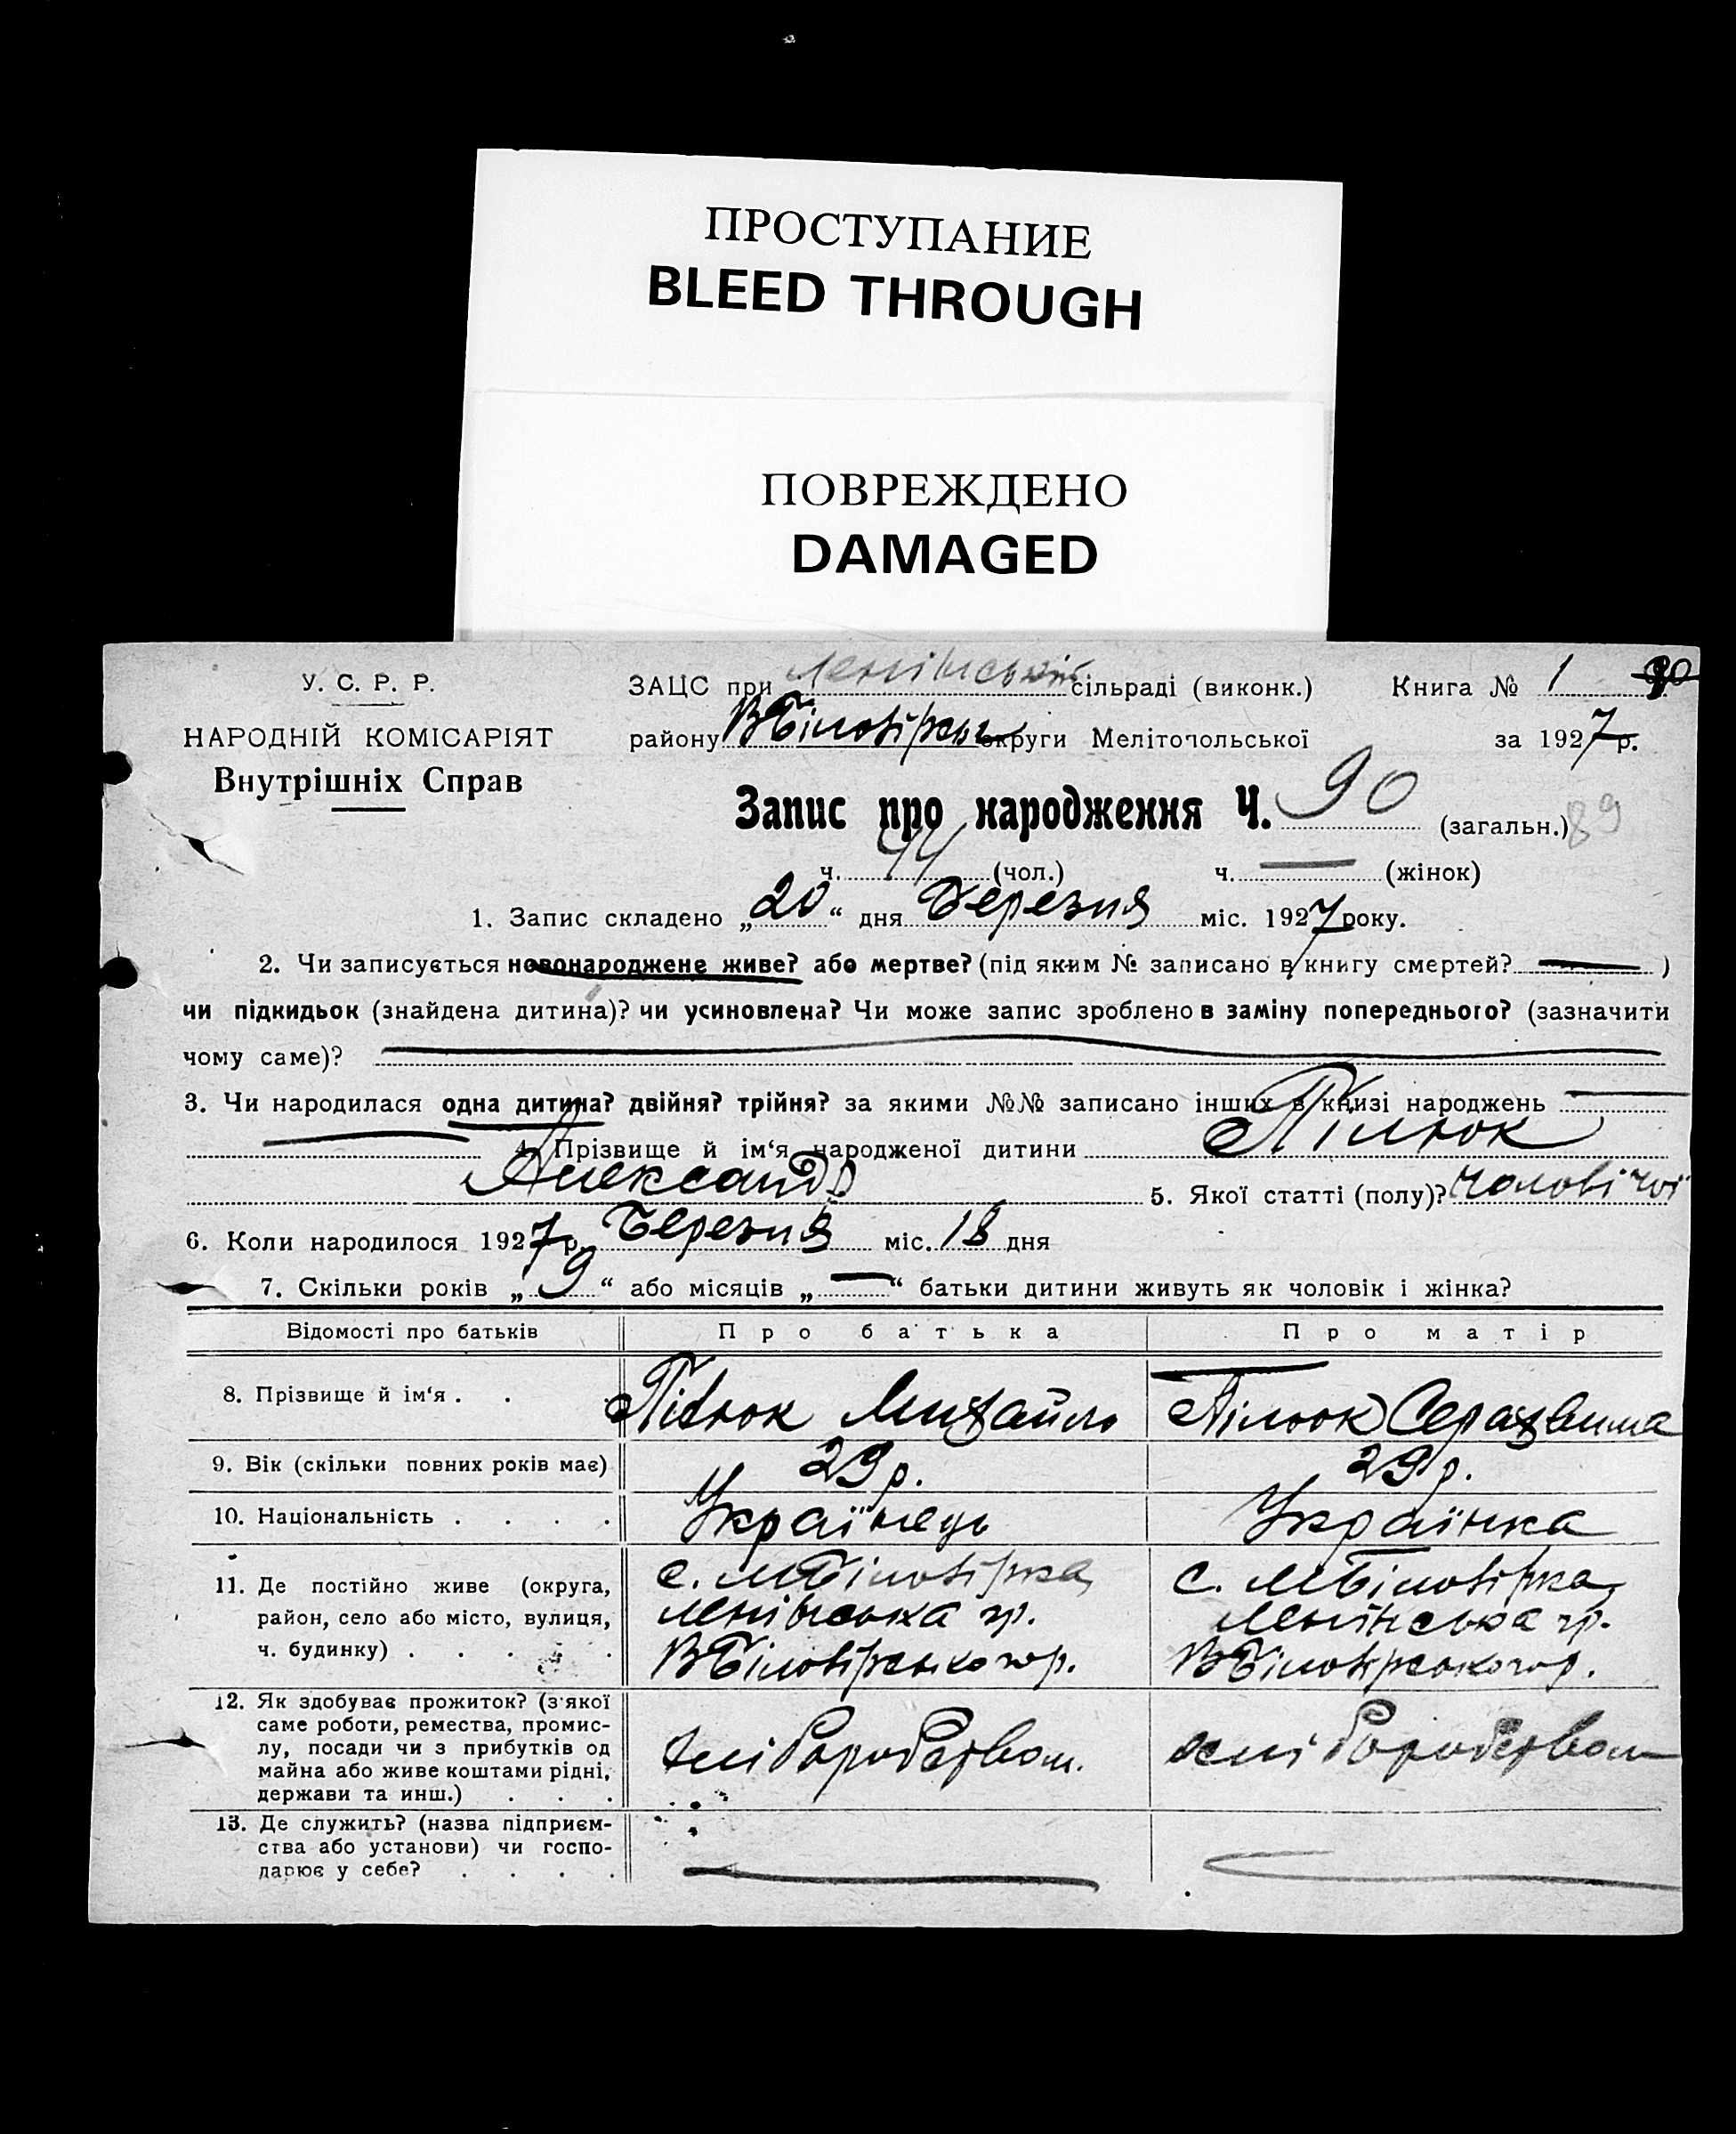 ПРОСТУПАНИЕ
BLEED THROUGH
ПОВРЕЖДЕНО
DAMAGED
У. С. Р. Р.
НАРОДНІЙ КОМІСАРІЯТ
Внутрішніх Справ
ЗАЦС при Ленінській сільраді (виконк.) Книга № 1 90
району ВБіловірськ округи Мелітопольської за 1927 р.
Запис про народження Ч. 90 (загальн.) 89
ч. 44 (чол.) ч. — (жінок)
1. Запис складено „20“ дня Березня міс. 1927 року.
2. Чи записується новонароджене живе? або мертве? (під яким № записано в книгу смертей? — )
чи підкидьок (знайдена дитина)? чи усиновлена? Чи може запис зроблено в заміну попереднього? (зазначити
чому саме)?
3. Чи народилася одна дитина? двійня? трійня? за якими №№ записано інших в книзі народжень —
4. Прізвище й ім‘я народженої дитини Пілюк
Александр 5. Якої статті (полу)? чоловічої
6. Коли народилося 1927 р. Березня міс. 18 дня
7. Скільки років „9“ або місяців „—“ батьки дитини живуть як чоловік і жінка?
Відомості про батьків Про батька Про матір
8. Прізвище й ім‘я . . . Пілюк Михайло Пілюк Серахвима
9. Вік (скільки повних років має) 29 р. 29 р.
10. Національність . . . . Українець Українка
11. Де постійно живе (округа,
район, село або місто, вулиця,
ч. будинку) . . . . .
с. МБіловірка
Ленінська гр.
ВБіловірського р.
с. МБіловірка
Ленінська гр.
ВБіловірського р.
12. Як здобуває прожиток? (з якої
саме роботи, ремества, промис-
лу, посади чи з прибутків од
майна або живе коштами рідні,
держави та инш.) . . .
хліборобством.
хліборобством
13. Де служить? (назва підприєм-
ства або установи) чи госпо-
дарює у себе? . . . .